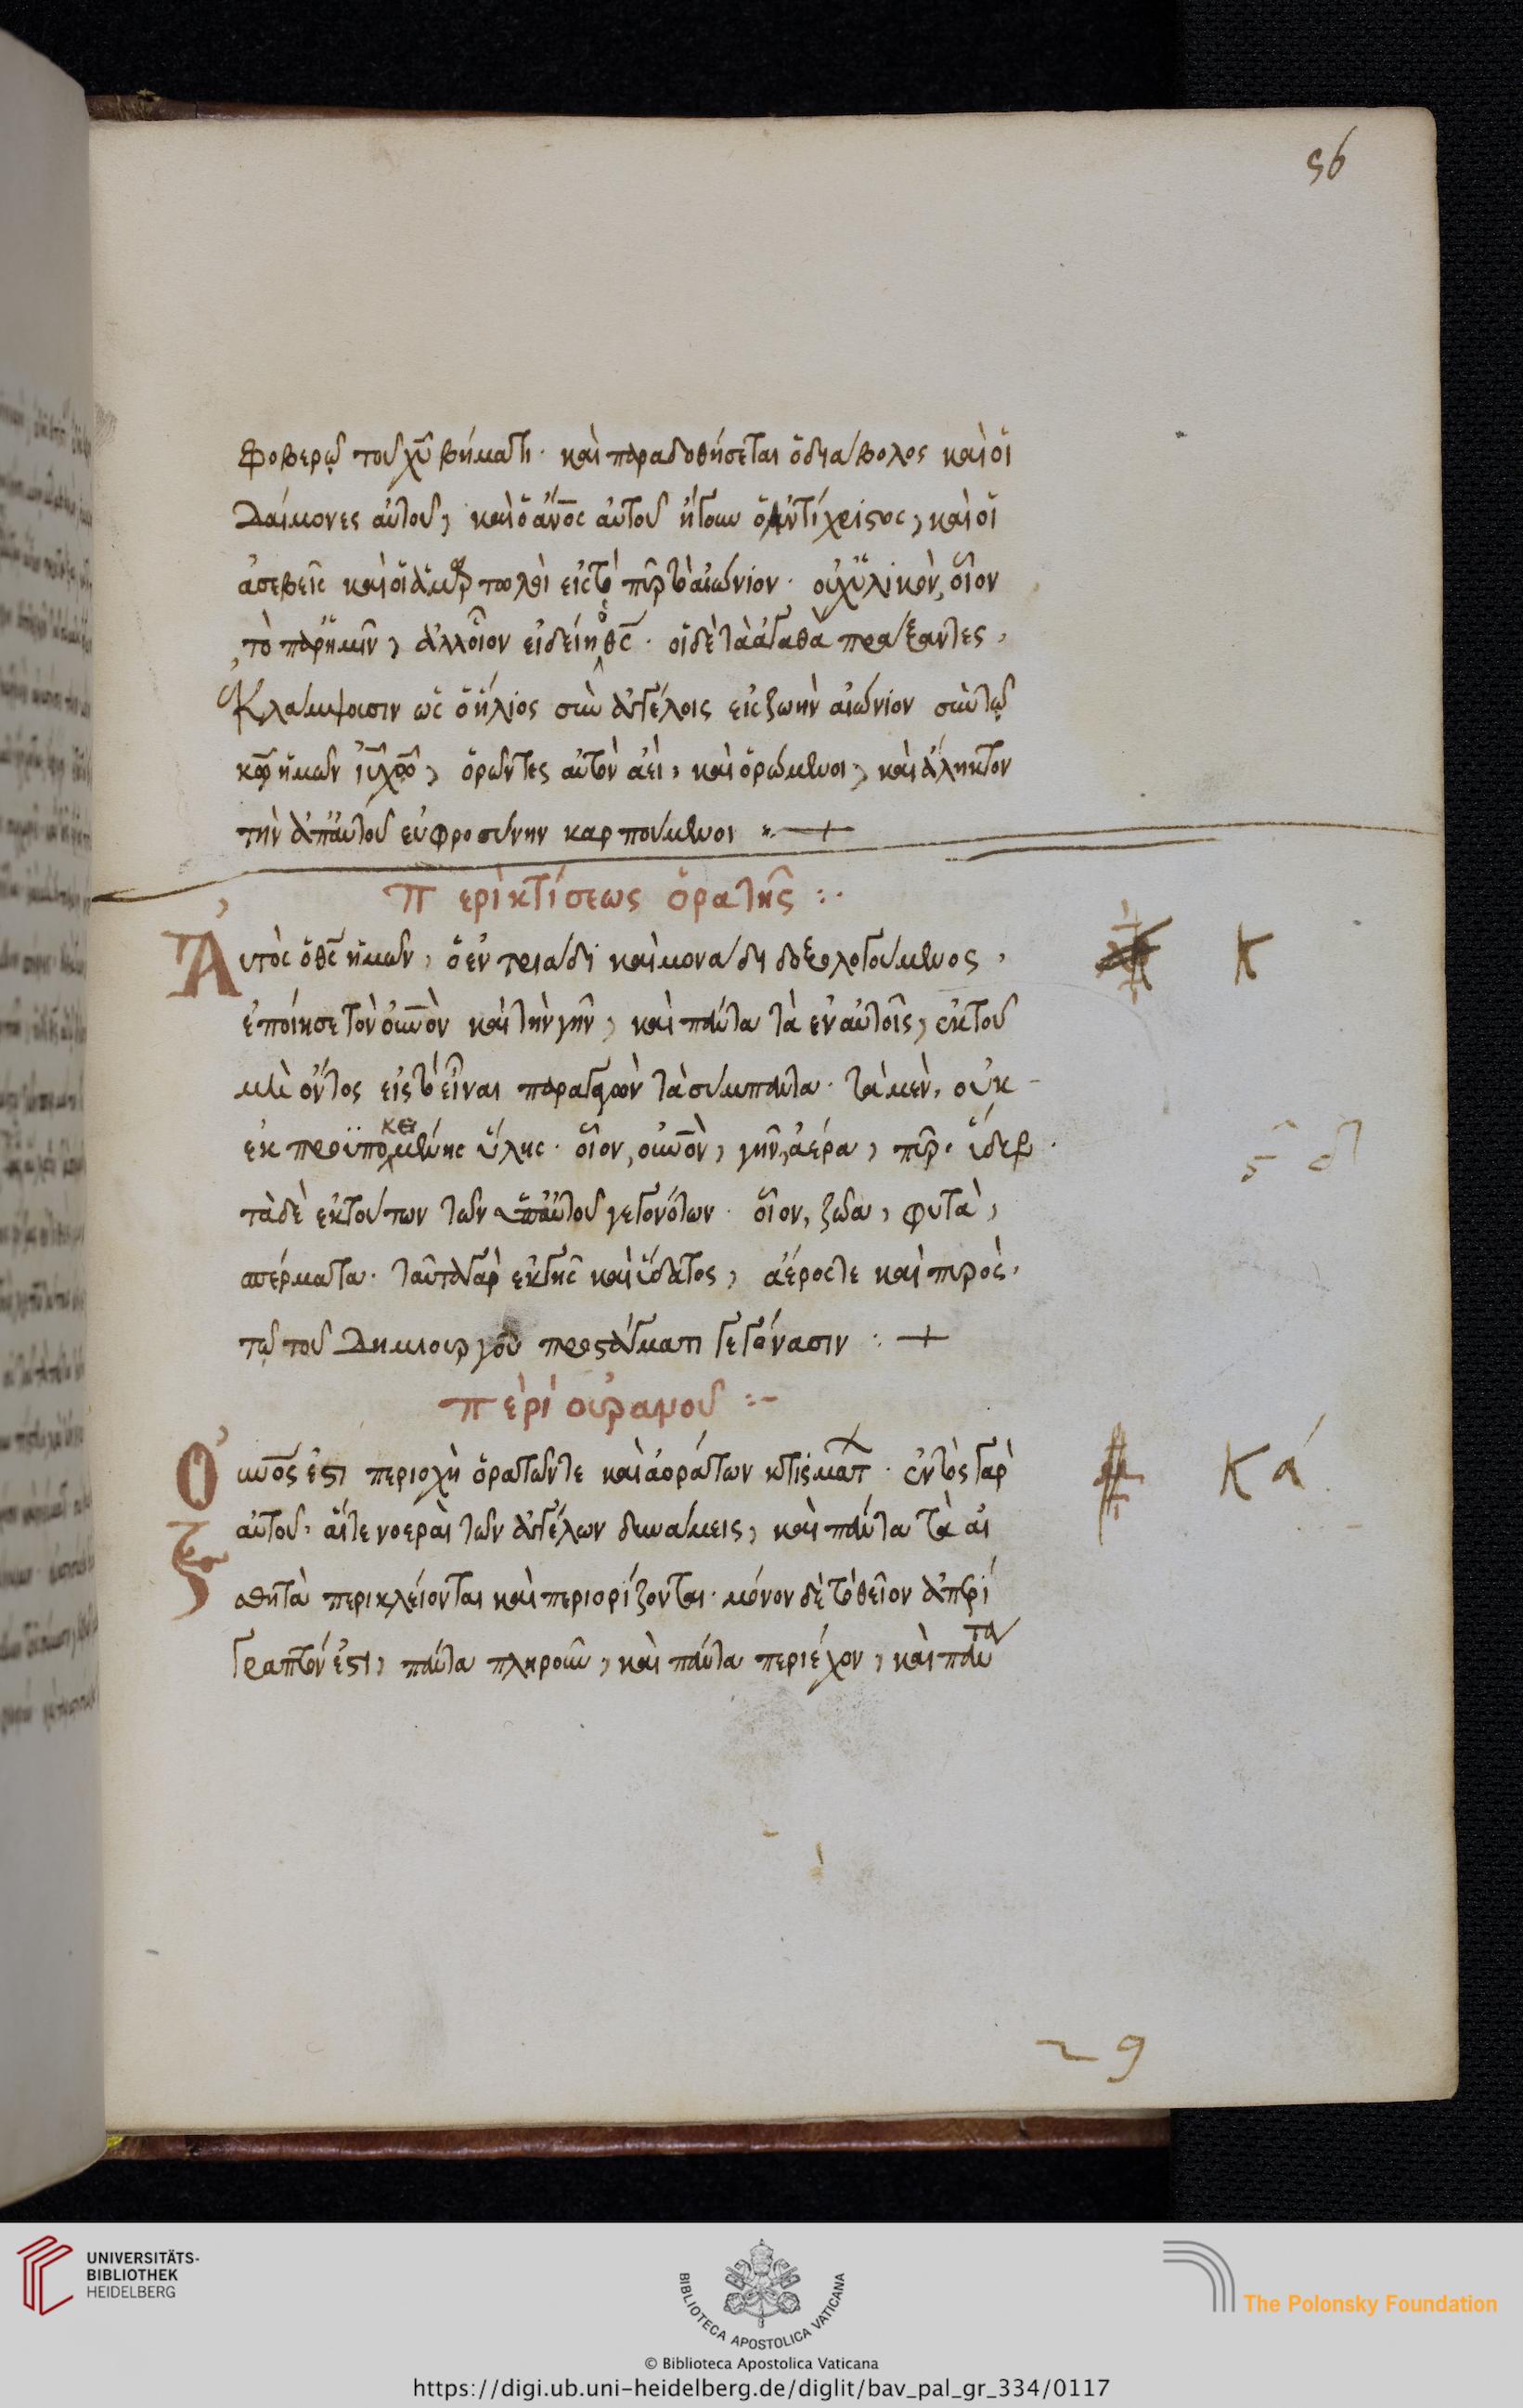 56
φοβερῶ τοῦ χῦ βήματι· καὶ παραδοθήσεται ὁ διάβολος καὶ οἱ
δαίμονες αὐτοῦ, καὶ ὁ ἄνος αὐτοῦ ἤγουν ὁ ἀντίχριστος, καὶ οἱ
ἀσεβεῖς καὶ οἱ ἁμαρτωλοὶ εἰς τὸ πῦρ τὸ αἰώνιον· οὐχ ὑλικὸν, οἷον
τὸ παρ' ἡμῖν, ἀλλ' οἷον εἰδείη ὁ θς· οἱ δὲ τὰ ἀγαθὰ πράξαντες,
ἐκλάμψουσιν ὡς ὁ ἥλιος σὺν ἀγγέλοις εἰς ζωὴν αἰώνιον σὺν τῶ
κῶ ἡμῶν ἰῦ χῶ, ὁρῶντες αὐτὸν ἀεὶ, καὶ ὁρώμενοι, καὶ ἄληκτον
τὴν ἀπ' αὐτοῦ εὐφροσύνην καρπούμενοι
Περὶ κτίσεως ὁρατῆς :·
Αὐτὸς ὁ θς ἡμῶν, ὁ ἐν τριάδι καὶ μονάδι δοξολογούμενος, Κ
ἐποίησε τὸν οὐνὸν καὶ τὴν γῆν, καὶ πάντα τὰ ἐν αὐτοῖς, ἐκ τοῦ
μὴ ὄντος εἰς τὸ εἶναι παραγαγὼν τὰ σύμπαντα· τὰ μὲν, οὐκ
ἐκ προϋποκειμένης ὕλης· οἷον, οὐνὸν, γῆν, ἀέρα, πῦρ, ὕδωρ·
τὰ δὲ ἐκ τούτων τῶν ὑπ' αὐτοῦ γεγονότων· οἷον, ζῶα, φυτὰ,
σπέρματα· ταῦτα γὰρ ἐκ γῆς καὶ ὕδατος, ἀέρος τε καὶ πυρὸς,
τῶ τοῦ δημιουργοῦ προστάγματι γεγόνασιν :
Περὶ οὐρανοῦ :-
Οὐνός ἐστι περιοχὴ ὁρατῶν τε καὶ ἀοράτων κτισμάτων· ἐντὸς γὰρ Κά
αὐτοῦ, αἵ τε νοεραὶ τῶν ἀγγέλων δυνάμεις, καὶ πάντα τὰ αἰ
σθητὰ περικλείονται καὶ περιορίζονται· μόνον δὲ τὸ θεῖον ἀπερί
γραπτόν ἐστι, πάντα πληροῦν, καὶ πάντα περιέχον, καὶ πάντα
29
UNIVERSITÄTS-
BIBLIOTHEK
HEIDELBERG
BIBLIOTECA APOSTOLICA VATICANA
The Polonsky Foundation
© Biblioteca Apostolica Vaticana
https://digi.ub.uni-heidelberg.de/diglit/bav_pal_gr_334/0117